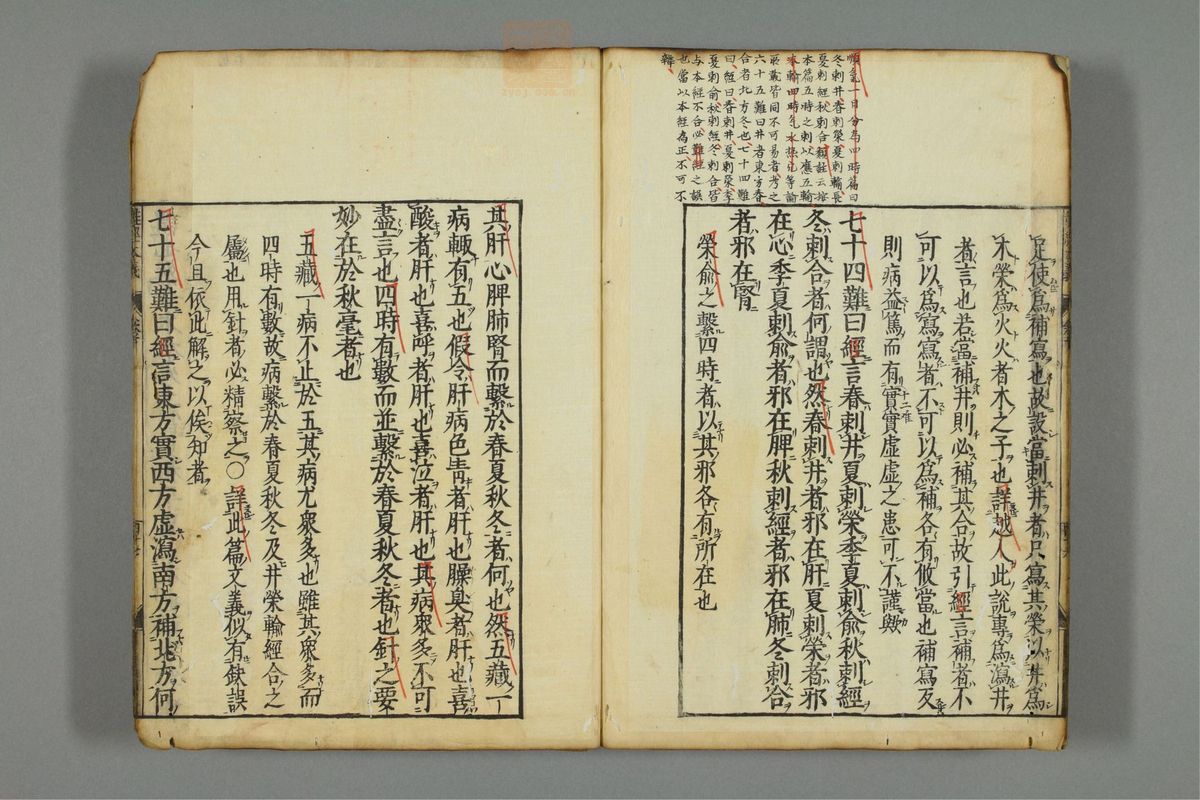 順氣一日分為四時篇曰
冬刺井春刺榮夏刺輸長
夏刺經秋刺合類註云按
本篇五時之刺以應五輸
本輸四時氣水熱穴等論
所載皆同不可易者考之
六十五難曰井者東方春
合者北方冬也七十四難
曰經曰春刺井夏刺榮季
夏刺俞秋刺經冬刺合皆
与本經不合必難經之誤
也當以本經為正不可不
辯
是使為補寫也故設當刺井者只寫其榮以井為
木榮爲火火者木之子也詳越人此說專爲瀉井
者言也若當補井則必補其合故引經言補者不
可以爲寫寫者不可以爲補各有攸當也補寫反
則病益篤而有實實虛虛之患可不謹歟
七十四難曰經言春刺井夏刺榮季夏刺俞秋刺經
冬刺合者何謂也然春刺井者邪在肝夏刺榮者邪
在心季夏刺俞者邪在脾秋刺經者邪在肺冬刺合
者邪在腎
榮俞之繫四時者以其邪各有所在也
其肝心脾肺腎而繫於春夏秋冬者何也然五藏一
病輙有五也假令肝病色靑者肝也臊臭者肝也喜
酸者肝也喜呼者肝也喜泣者肝也其病衆多不可
盡言也四時有數而並繫於春夏秋冬者也針之要
妙在於秋毫者也
五藏一病不止於五其病尤衆多也雖其衆多而
四時有數故病繫於春夏秋冬及井榮輸經合之
屬也用針者必精察之○詳此篇文義似有缺誤
今且依此解之以俟知者
七十五難曰經言東方實西方虛瀉南方補北方何